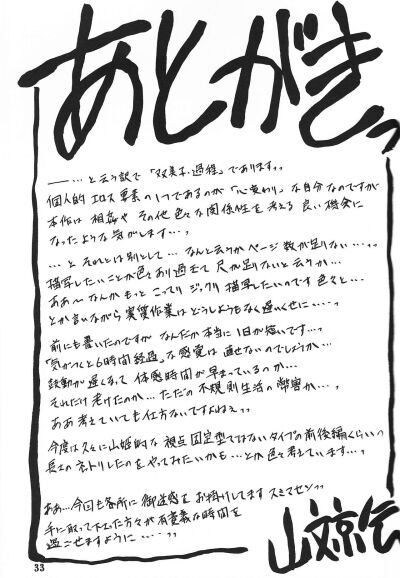 あとがきっ
―――…と云う訳で「双美子・過程」でありますっっ
個人的エロス要素の1つであるのが「心変わり」な自分なのですが
本作は相姦やその他色々な関係性を考える良い機会に
なったような気がします…っ
…とそれとは別として…なんと云うかページ数が足りない…っっ
描写したいことが色々あり過ぎて尺が足りないと云うか…
ああ〜なんかもっとこってりジックリ描写したいのです色々と…
とか言いながら実質作業はどうしようもなく遅いくせに……っ
前にも書いたのですがなんだか本当に1日が短いです…っ
「気がつくと6時間経過」な感覚は直せないのでしょうか…
鼓動が遅くなって体感時間が早まっているのか…
それだけ老けたのか…ただの不規則生活の弊害か…っ
ああ考えていても仕方ないですよねぇっっ
今度は久々に山姫的な視点固定型ではないタイプの前後編くらいの
長さのネトリしたのをやってみたいかも…とか色々考えています…っ
ああ…今回も各所に御迷惑をお掛けしてますスミマセンっっ
手に取って下さった方々が有意義な時間を
過ごせますように……っっ
山文京伝
33